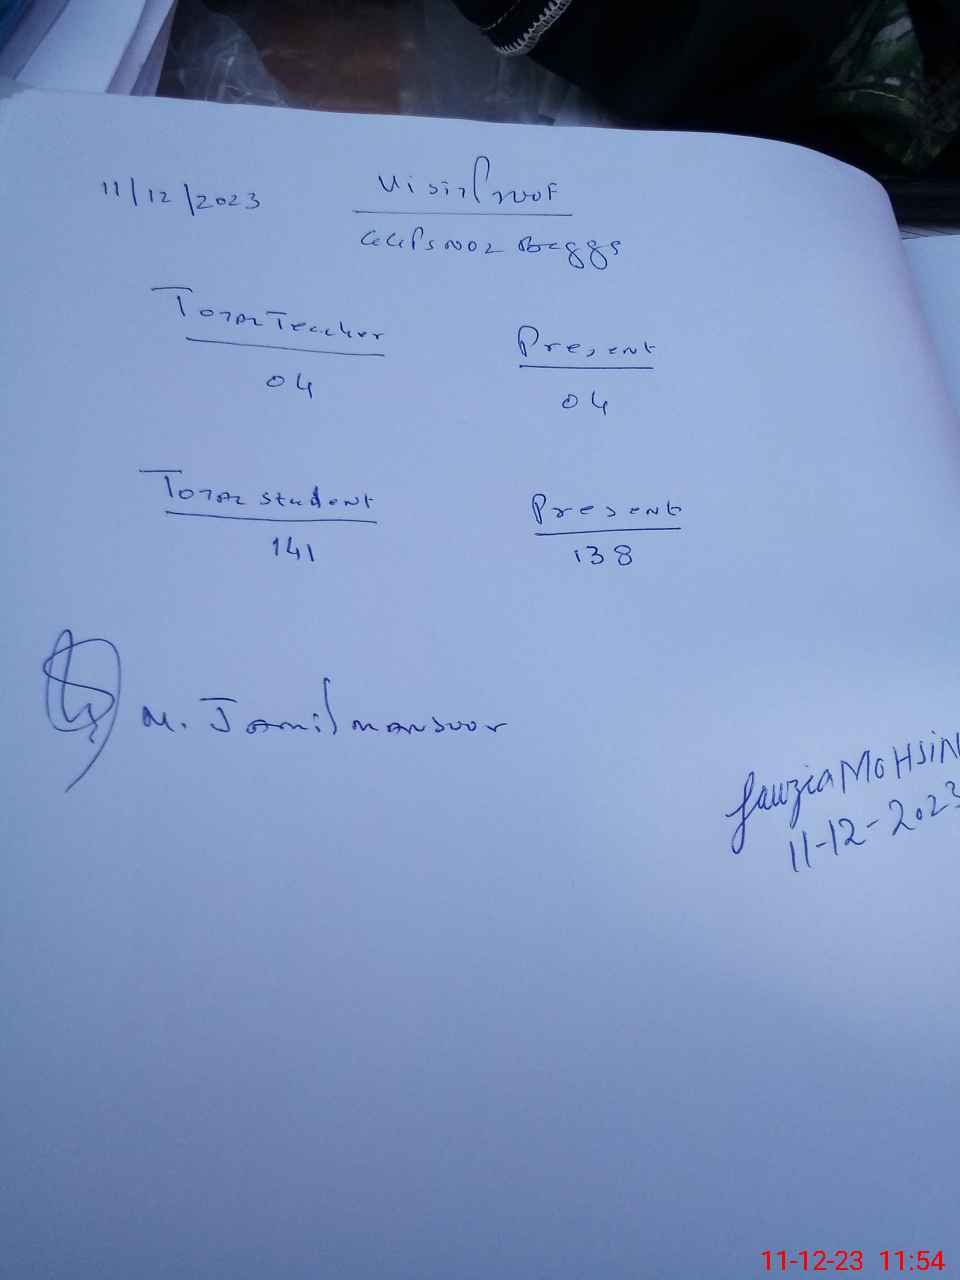 11/12/2023
Visit Proof
GGPS No2 Baggs
Total Teacher Present
04 04
Total student Present
141 138
M. Jamil mansoor
Fauzia MOHSIN
11-12-2023
11-12-23 11:54